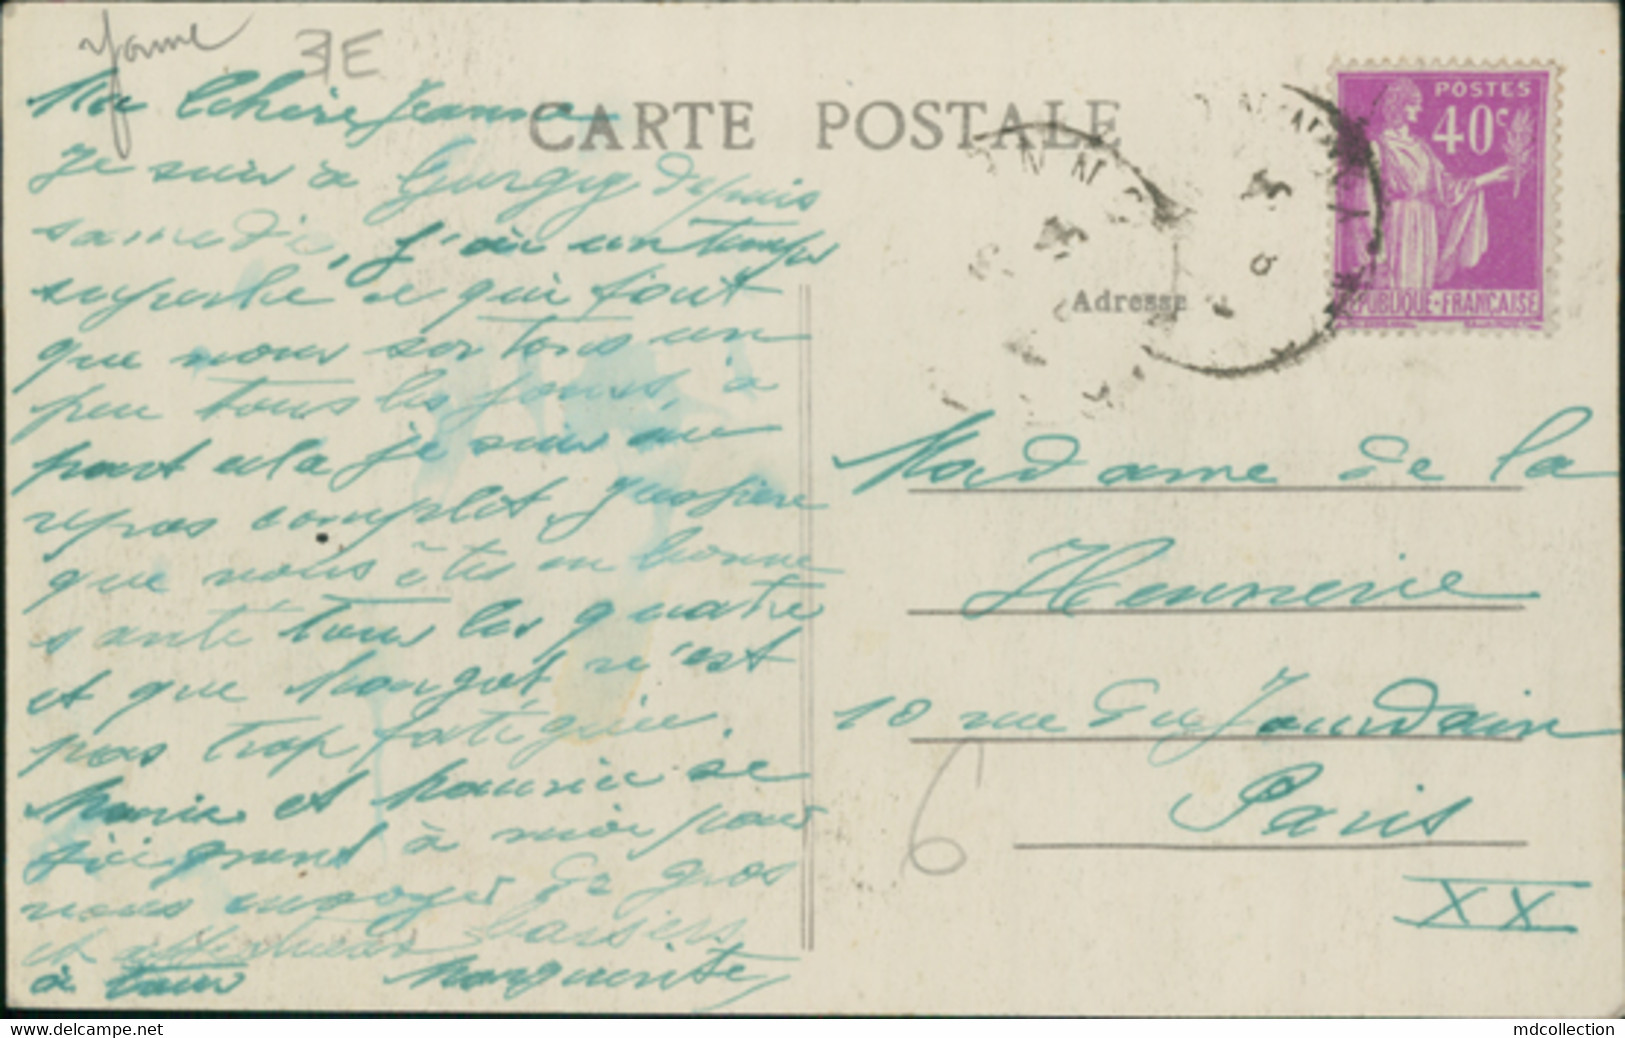 Yonne
3E
CARTE POSTALE
Ma Chère Jeanne
Je suis à Gurgy depuis
samedi, j'ai un temps
superbe ce qui fait
que nous sortons un
peu tous les jours, à
part cela je suis au
repos complet, j'espère
que vous êtes en bonne
santé tous les quatre
et que Margot n'est
pas trop fatiguée.
Marie et Maurice se
joignent à moi pour
vous envoyer de gros
et affectueux baisers
à tous Marguerite
POSTES
40c
REPUBLIQUE-FRANÇAISE
Adresse
Madame de la
Hennerie
10 rue Jourdain
Paris
XX
6
www.delcampe.net
mdcollection